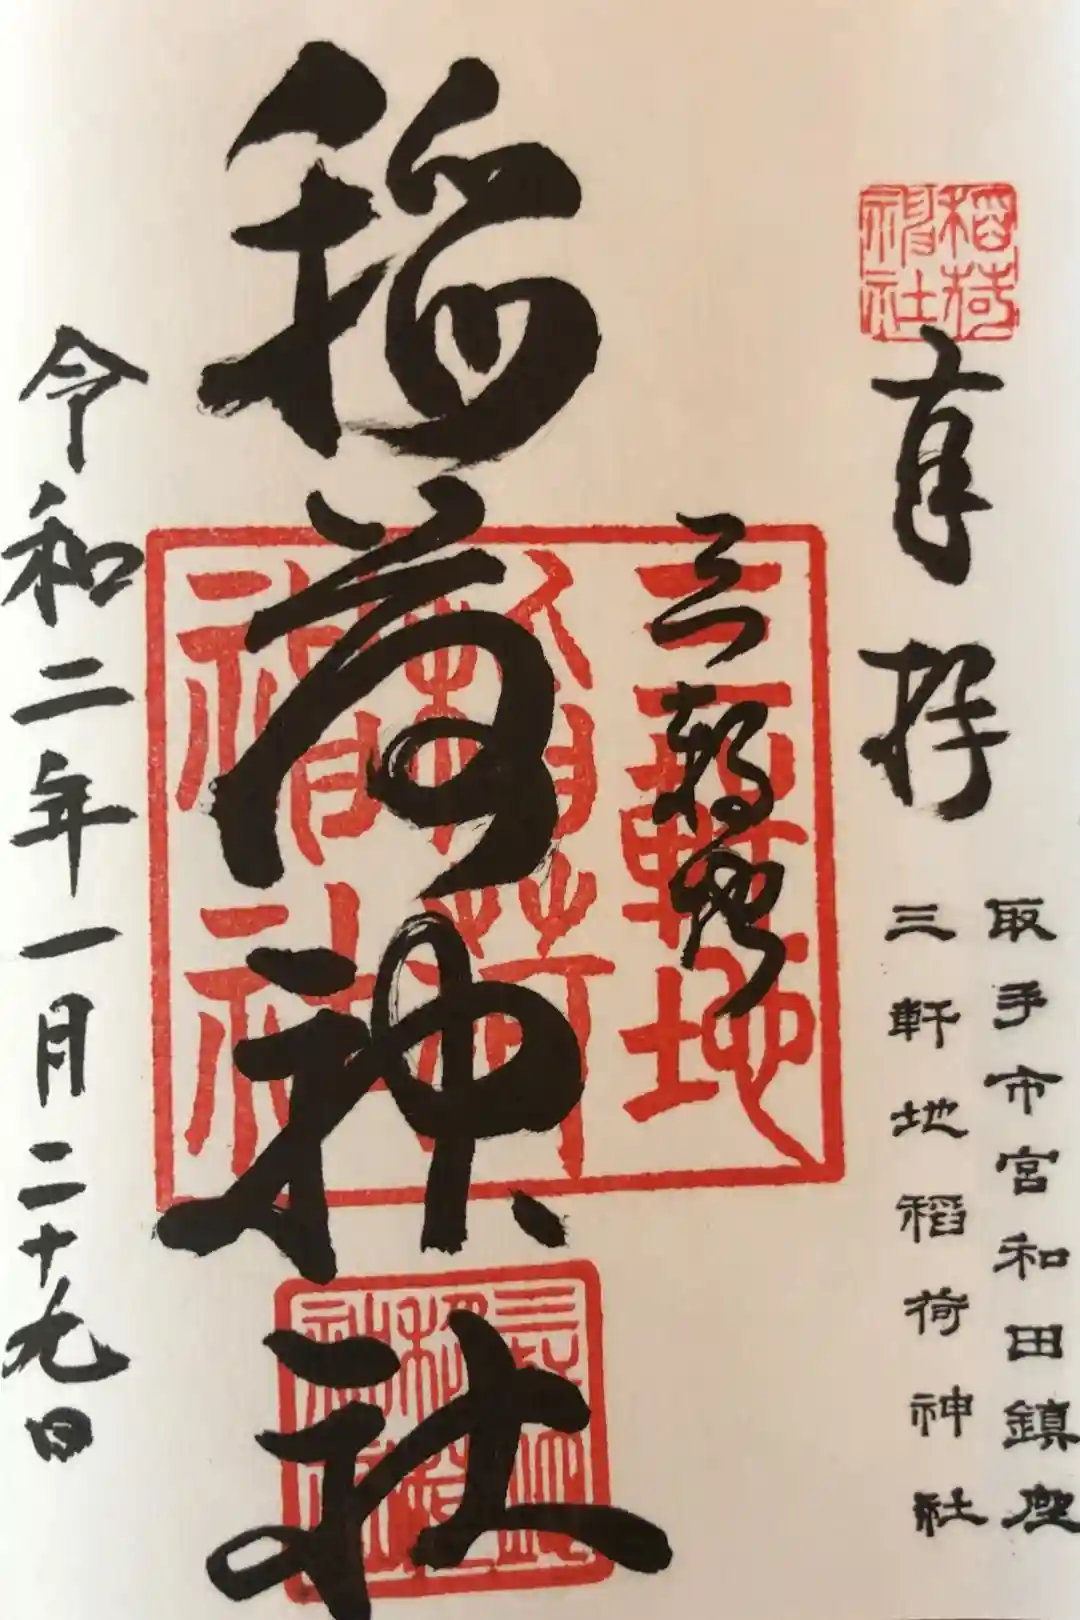 稲荷神社
奉拝
取手市宮和田鎮座
三軒地稲荷神社
三軒地
稲荷神社
三軒地
稲荷
神社
令和二年一月二十九日